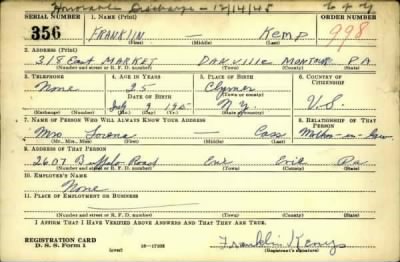 Honorable Discharge - 12/14/45
SERIAL NUMBER 1. NAME (Print) ORDER NUMBER
356 FRANKLIN — Kemp 998
(First) (Middle) (Last)
2. ADDRESS (Print)
318 East MARKET DANVILLE MONTOUR PA.
(Number and street or R. F. D. number) (Town) (County) (State)
3. TELEPHONE 4. AGE IN YEARS 5. PLACE OF BIRTH 6. COUNTRY OF CITIZENSHIP
None 25 Clymer
DATE OF BIRTH (Town or county)
July 9 1915 N.Y. U.S.
(Exchange) (Number) (Mo.) (Day) (Yr.) (State or country)
7. NAME OF PERSON WHO WILL ALWAYS KNOW YOUR ADDRESS 8. RELATIONSHIP OF THAT PERSON
Mrs — Cass Mother-in-law
(Mr., Mrs., Miss) (First) (Middle) (Last)
9. ADDRESS OF THAT PERSON
2607 Buffalo Road Erie Erie Pa.
(Number and street or R. F. D. number) (Town) (County) (State)
10. EMPLOYER'S NAME
None
11. PLACE OF EMPLOYMENT OR BUSINESS
(Number and street or R. F. D. number) (Town) (County) (State)
I AFFIRM THAT I HAVE VERIFIED ABOVE ANSWERS AND THAT THEY ARE TRUE.
REGISTRATION CARD Franklin Kemp
D. S. S. Form 1 (over) (Registrant's signature)